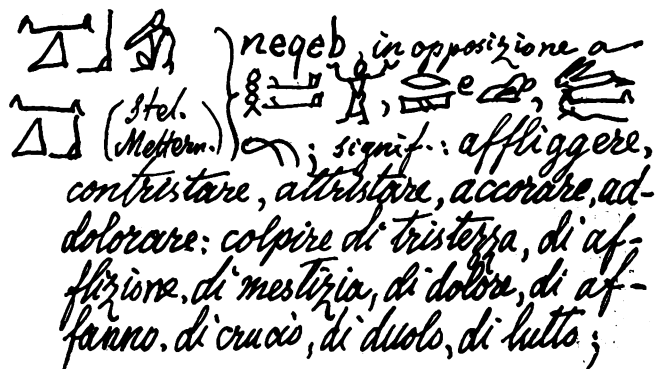 neqeb, in opposizione a
, e ,
(Stel. Mettern.) ; signif.: affliggere,
contristare, attristare, accorare, ad-
dolorare: colpire di tristezza, di af-
flizione, di mestizia, di dolore, di af-
fanno, di crucio, di duolo, di lutto;